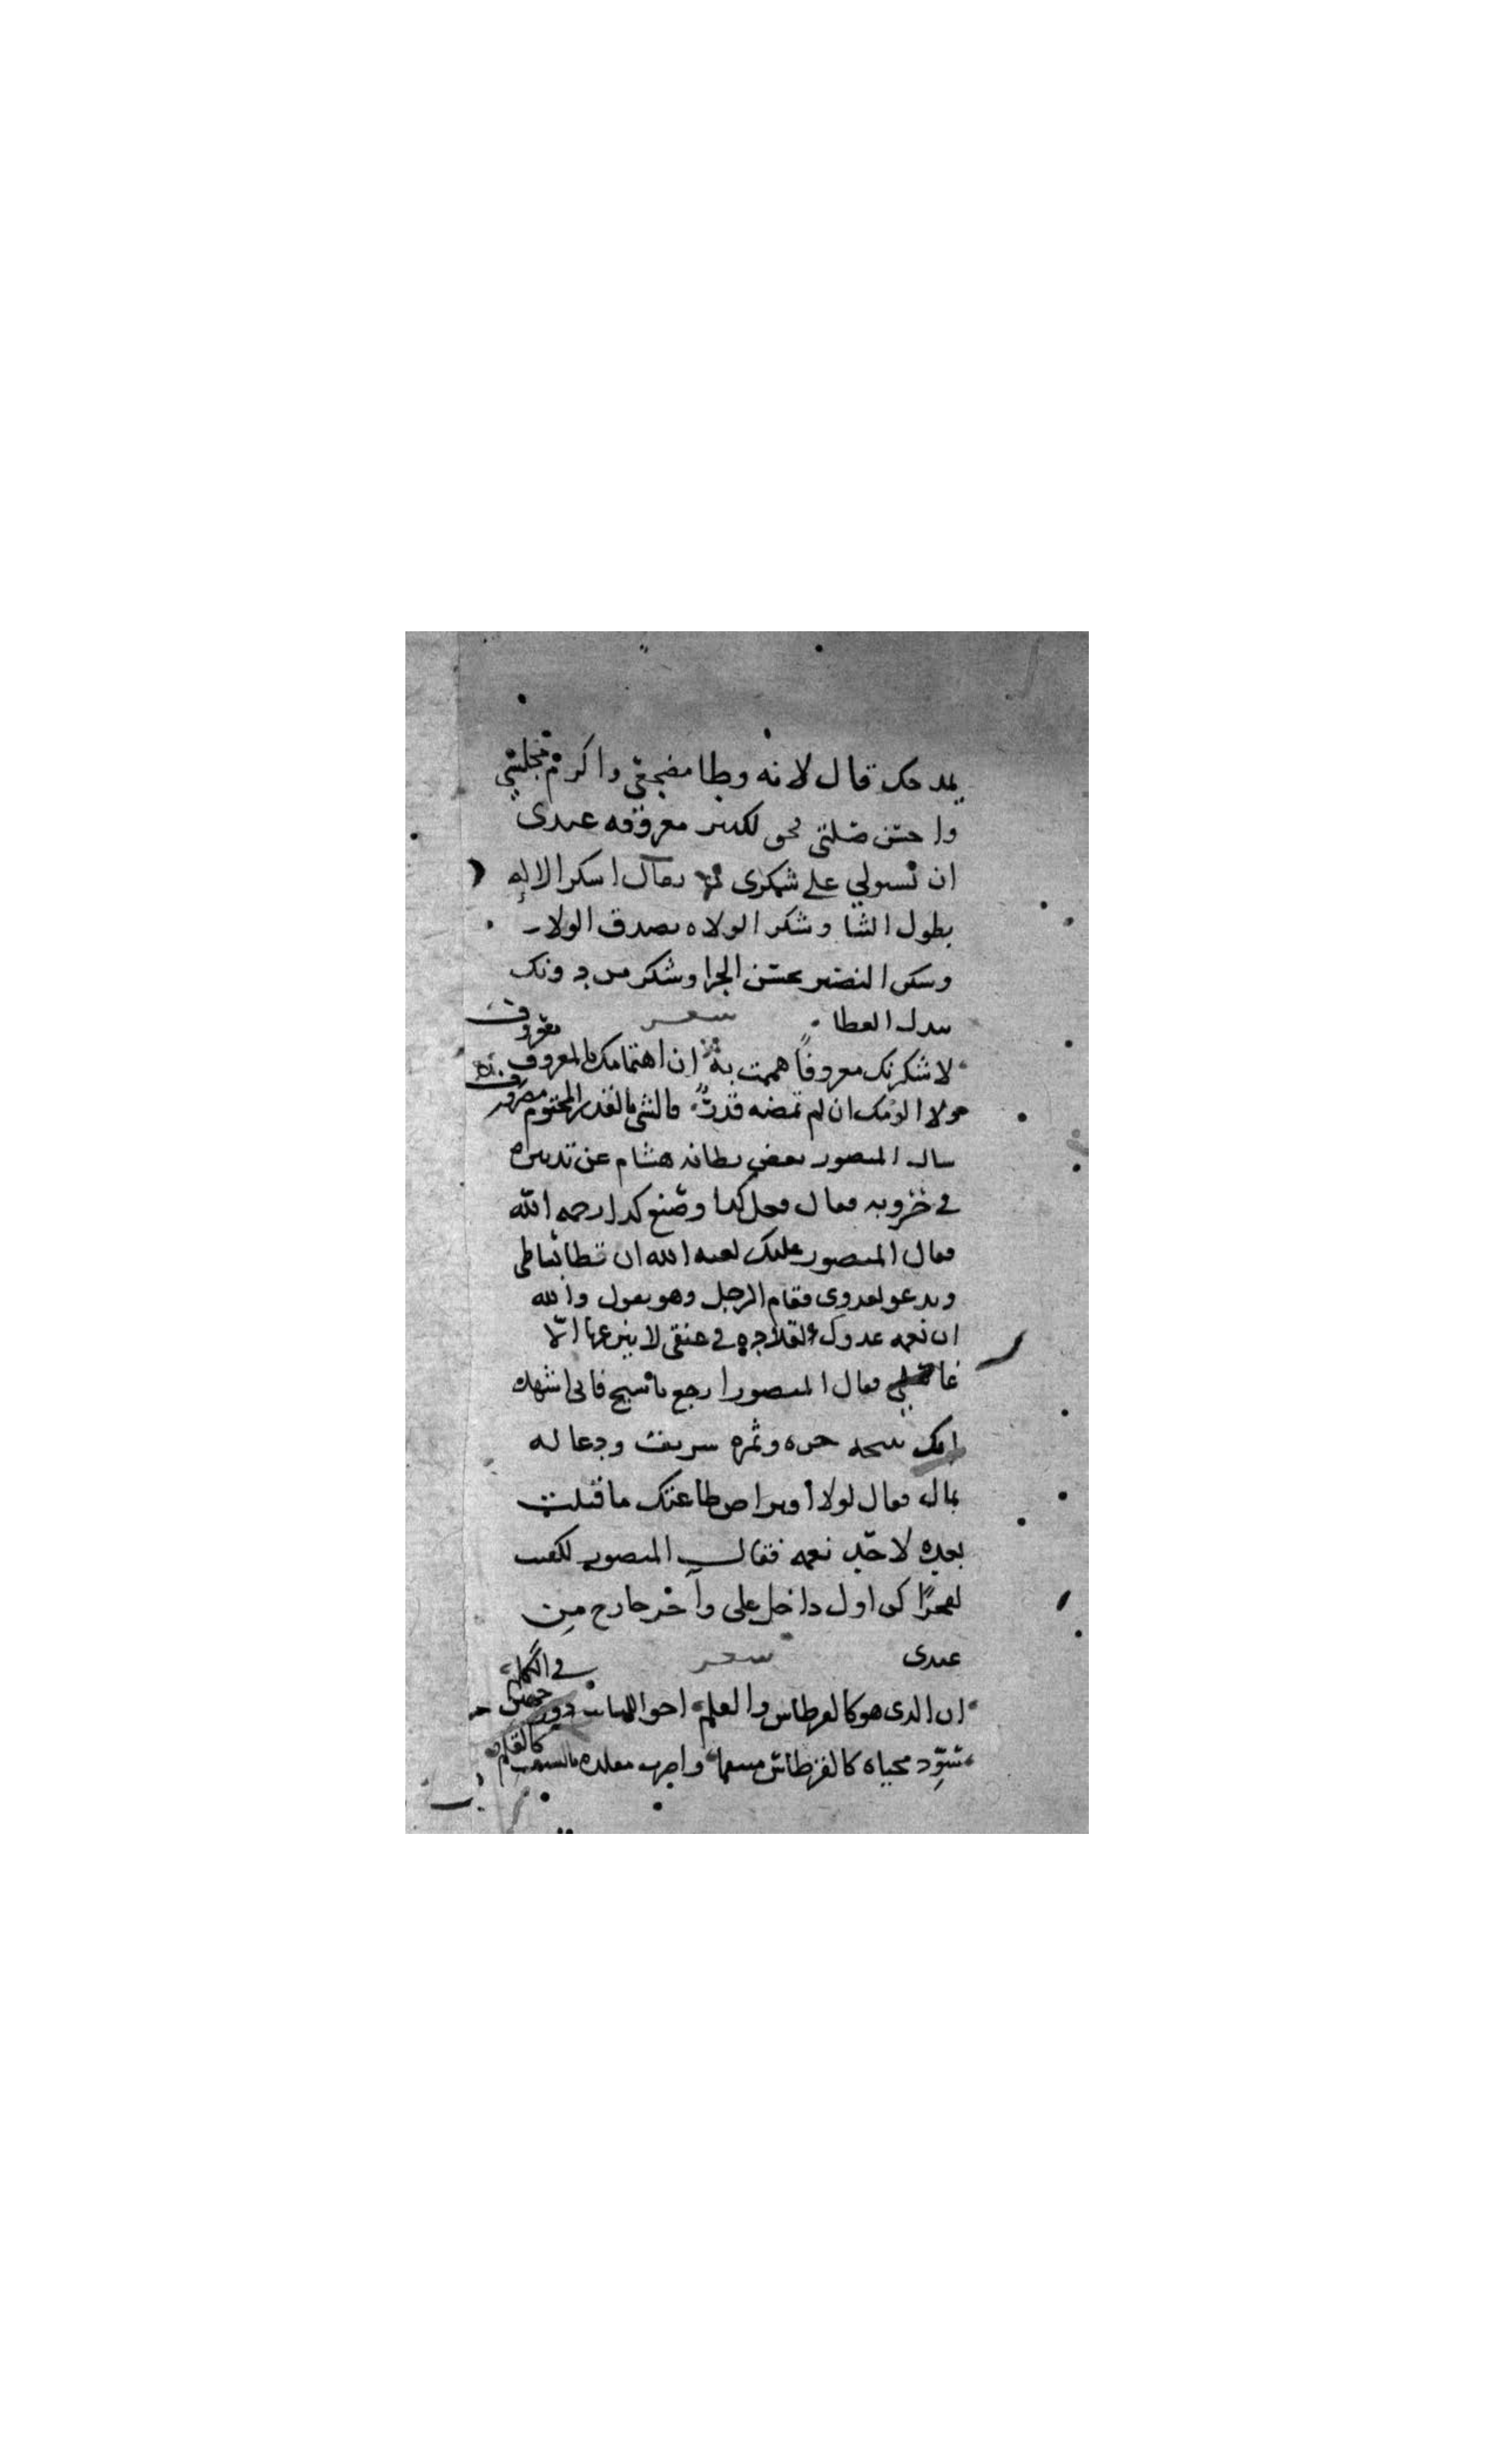 يمدحك قال لانه وطا مضجعي واكرم مجلسي
واحسن صلتي فحق لكبير معروفه عندى
ان تستولي على شكرى يقال اشكر الاله
بطول الثنا وشكر الولاه بصدق الولا
وشكر النضير بحسن الجزا وشكر من دونك
ببذل العطا شعر
لاشكرنك معروفا هممت به ان اهتمامك بالمعروف معروف
ولا الومك ان لم تمضه قدر فالشى بالقدر المحتوم مصروف
سال المنصور بعض بطانه هشام عن تدبيره
في حروبه فقال فعل كذا وصنع كذا رحمه الله
فقال المنصور عليك لعنه الله ان تطا بساطى
وتدعو لعدوى فقام الرجل وهو يقول والله
ان نعمه عدوك لقلاده في عنقى لا ينزعها الا
غاسلي فقال المنصور ارجع يا شيخ فانى اشهد
انك نتيجه حره وثمره شريف ودعا له
بمال فقال لولا افتراض طاعتك ما قبلت
بعده لاحد نعمه فقال المنصور لكفيت
لفخرا كن اول داخل على وآخر خارج من
عندى شعر
ان الذى هو كالقرطاس والقلم اخو اللسان في الكلم
تسود محياه كالقرطاس واضرب مقلده بالسيف كالقلم